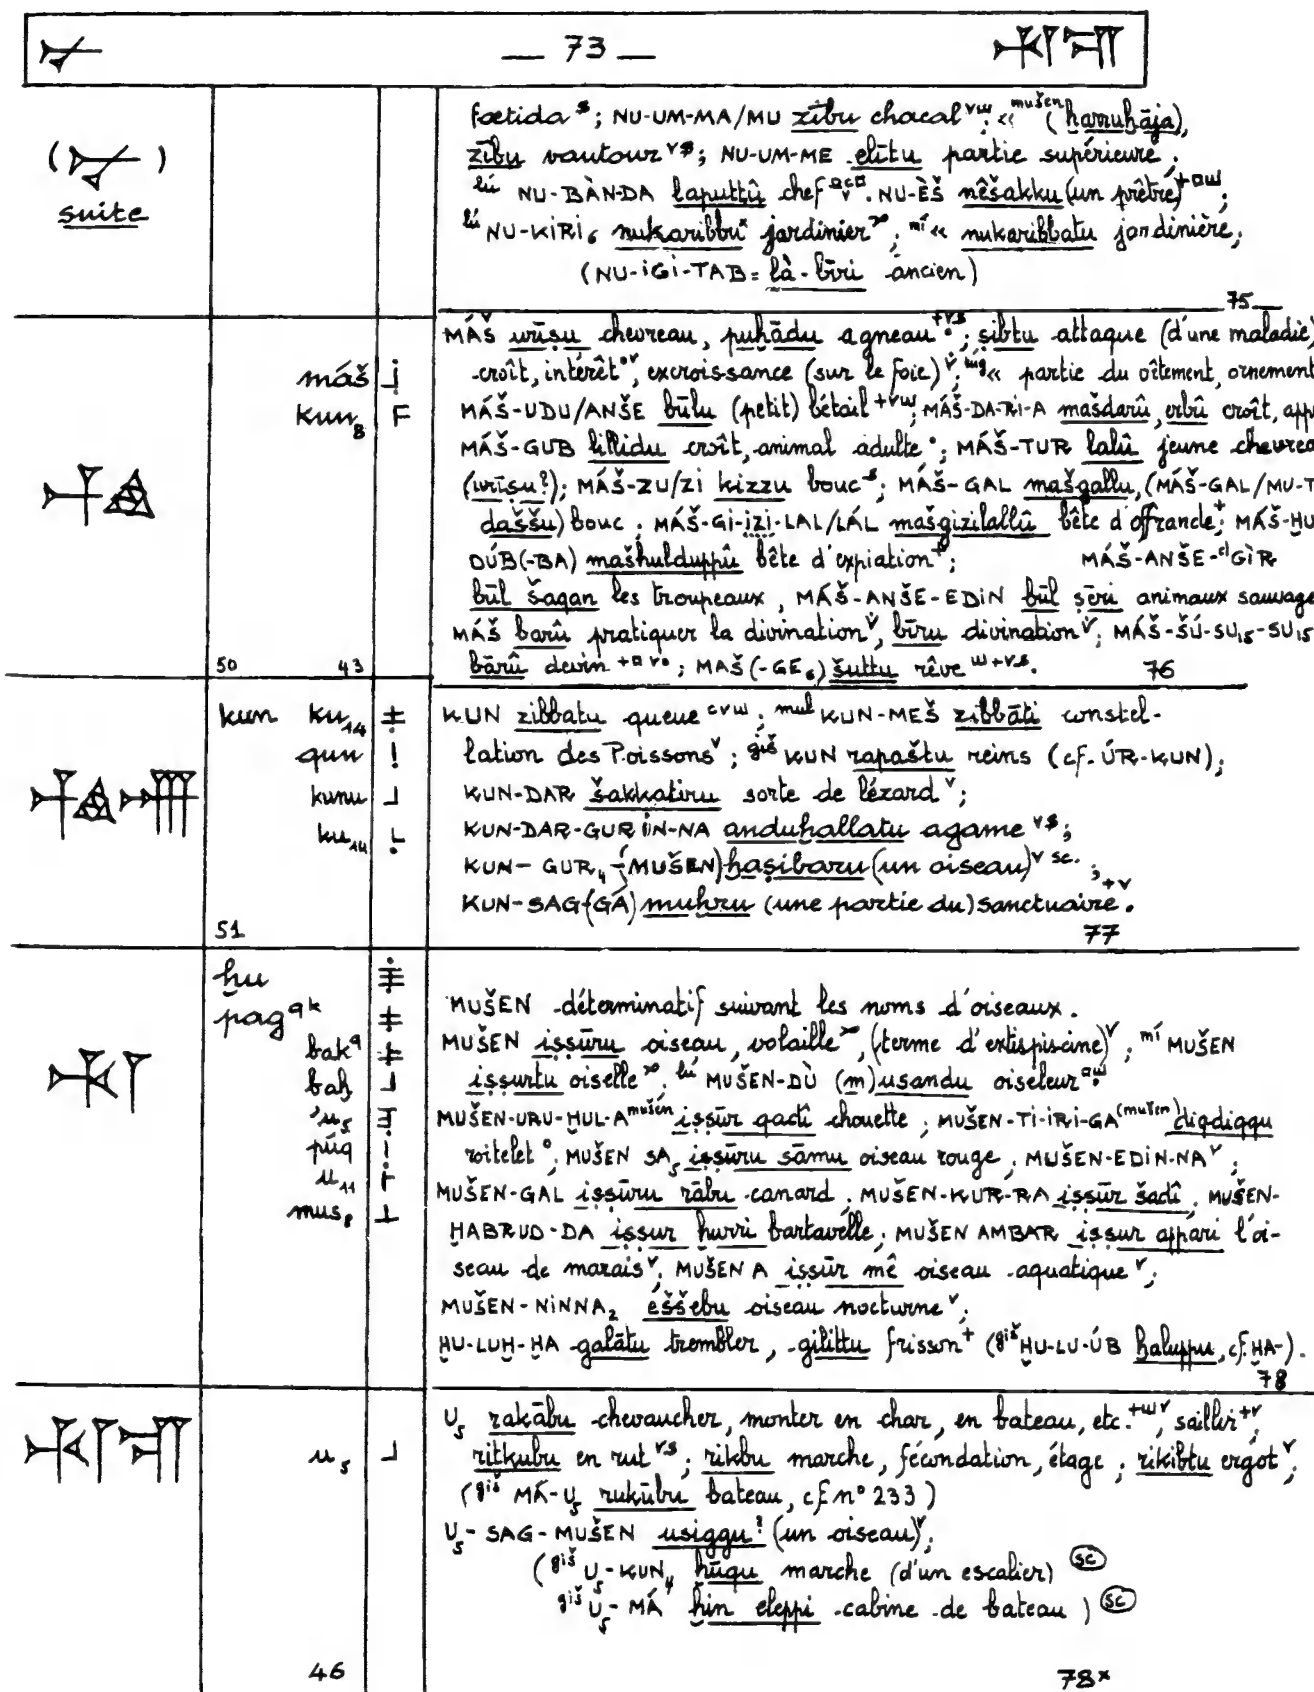 — 73 —
(𒉡)
suite
fœtida ˢ; NU-UM-MA/MU zību chacal ᵛʷ; « ᵐᵘšᵉⁿ (ḫarruḫāja),
zību vautour ᵛˢ; NU-UM-ME elītu partie supérieure;
ˡú NU-BÀN-DA laputtû chef. NU-ÈŠ nêšakku (un prêtre);
ˡú NU-KIRI₆ nukaribbu jardinier; ᵐí « nukaribbatu jardinière;
(NU-IGI-TAB = là-bīri ancien)
75
máš
kun₈
MÁŠ urīṣu chevreau, puḫādu agneau ⁺ᵛˢ; ṣibtu attaque (d'une maladie)
croît, intérêt °ᵛ, excroissance (sur le foie) ᵛ; « partie du vêtement, ornement
MÁŠ-UDU/ANŠE būlu (petit) bétail ⁺ᵛʷ; MÁŠ-DA-RI-A mašdarû, erbû croît, app
MÁŠ-GUB lillidu croît, animal adulte °; MÁŠ-TUR lalû jeune chevrea
(urīṣu?); MÁŠ-ZU/ZI kizzu bouc ˢ; MÁŠ-GAL mašgallu, (MÁŠ-GAL/MU-T
daššu) bouc; MÁŠ-GI-IZI-LAL/LÁL mašgizilallû bête d'offrande ⁺; MÁŠ-HU
DÚB(-BA) mašhulduppû bête d'expiation ⁺; MÁŠ-ANŠE-ᵈGÌR
būl šaqan les troupeaux, MÁŠ-ANŠE-EDIN būl ṣēri animaux sauvage
MÁŠ barû pratiquer la divination ᵛ, bīru divination ᵛ; MÁŠ-ŠÚ-SU₁₅-SU₁₅
bārû devin; MAŠ(-GE₆) šuttu rêve ʷ⁺ᵛˢ.
50 43 76
kun ku₁₄
qun
kunu
KUN zibbatu queue ᶜᵛʷ; ᵐᵘˡ KUN-MEŠ zibbāti constel-
lation des Poissons ᵛ; ᵍⁱš KUN rapaštu reins (cf. ÚR-KUN);
KUN-DAR šakkatiru sorte de lézard ᵛ;
KUN-DAR-GURIN-NA anduḫallatu agame ᵛˢ;
KUN-GUR₄-(MUŠEN) ḫaṣibaru (un oiseau) ᵛ ˢᶜ·;
KUN-SAG(GÁ) muḫru (une partie du) sanctuaire ⁺ᵛ.
51 77
ḫu
pag q k
bak q
baḫ
'u₅
púq
u₁₁
mus₈
MUŠEN déterminatif suivant les noms d'oiseaux.
MUŠEN iṣṣūru oiseau, volaille, (terme d'extispicine) ᵛ; ᵐí MUŠEN
iṣṣurtu oiselle. ˡú MUŠEN-DÙ (m)usandu oiseleur
MUŠEN-URU-ḪUL-A ᵐᵘšᵉⁿ iṣṣūr qadî chouette; MUŠEN-TI-IRI-GA ⁽ᵐᵘšᵉⁿ⁾ diqdiqqu
roitelet °; MUŠEN SA₅ iṣṣūru sāmu oiseau rouge; MUŠEN-EDIN-NA ᵛ;
MUŠEN-GAL iṣṣūru rābu canard; MUŠEN-KUR-RA iṣṣūr šadî, MUŠEN-
ḪABRUD-DA iṣṣur ḫurri bartavelle; MUŠEN AMBAR iṣṣur appari l'oi-
seau de marais ᵛ; MUŠEN A iṣṣūr mê oiseau aquatique ᵛ;
MUŠEN-NINNA₂ eššebu oiseau nocturne ᵛ;
ḪU-LUḪ-ḪA galātu trembler, gilittu frisson ⁺ (ᵍⁱš ḪU-LU-ÚB ḫaluppu, cf. ḪA-).
78
u₅
U₅ rakābu chevaucher, monter en char, en bateau, etc. ⁺ʷᵛ, saillir ⁺ᵛ;
ritkubu en rut ᵛˢ; rikbu marche, fécondation, étage; rikibtu ergot ᵛ;
(ᵍⁱš MÁ-U₅ rukūbu bateau, cf. n° 233)
U₅-SAG-MUŠEN usiggu? (un oiseau) ᵛ;
(ᵍⁱš U₅-KUN₄ ḫūqu marche (d'un escalier) (sc)
ᵍⁱš U₅-MÁ ḫin eleppi cabine de bateau) (sc)
46 78ˣ